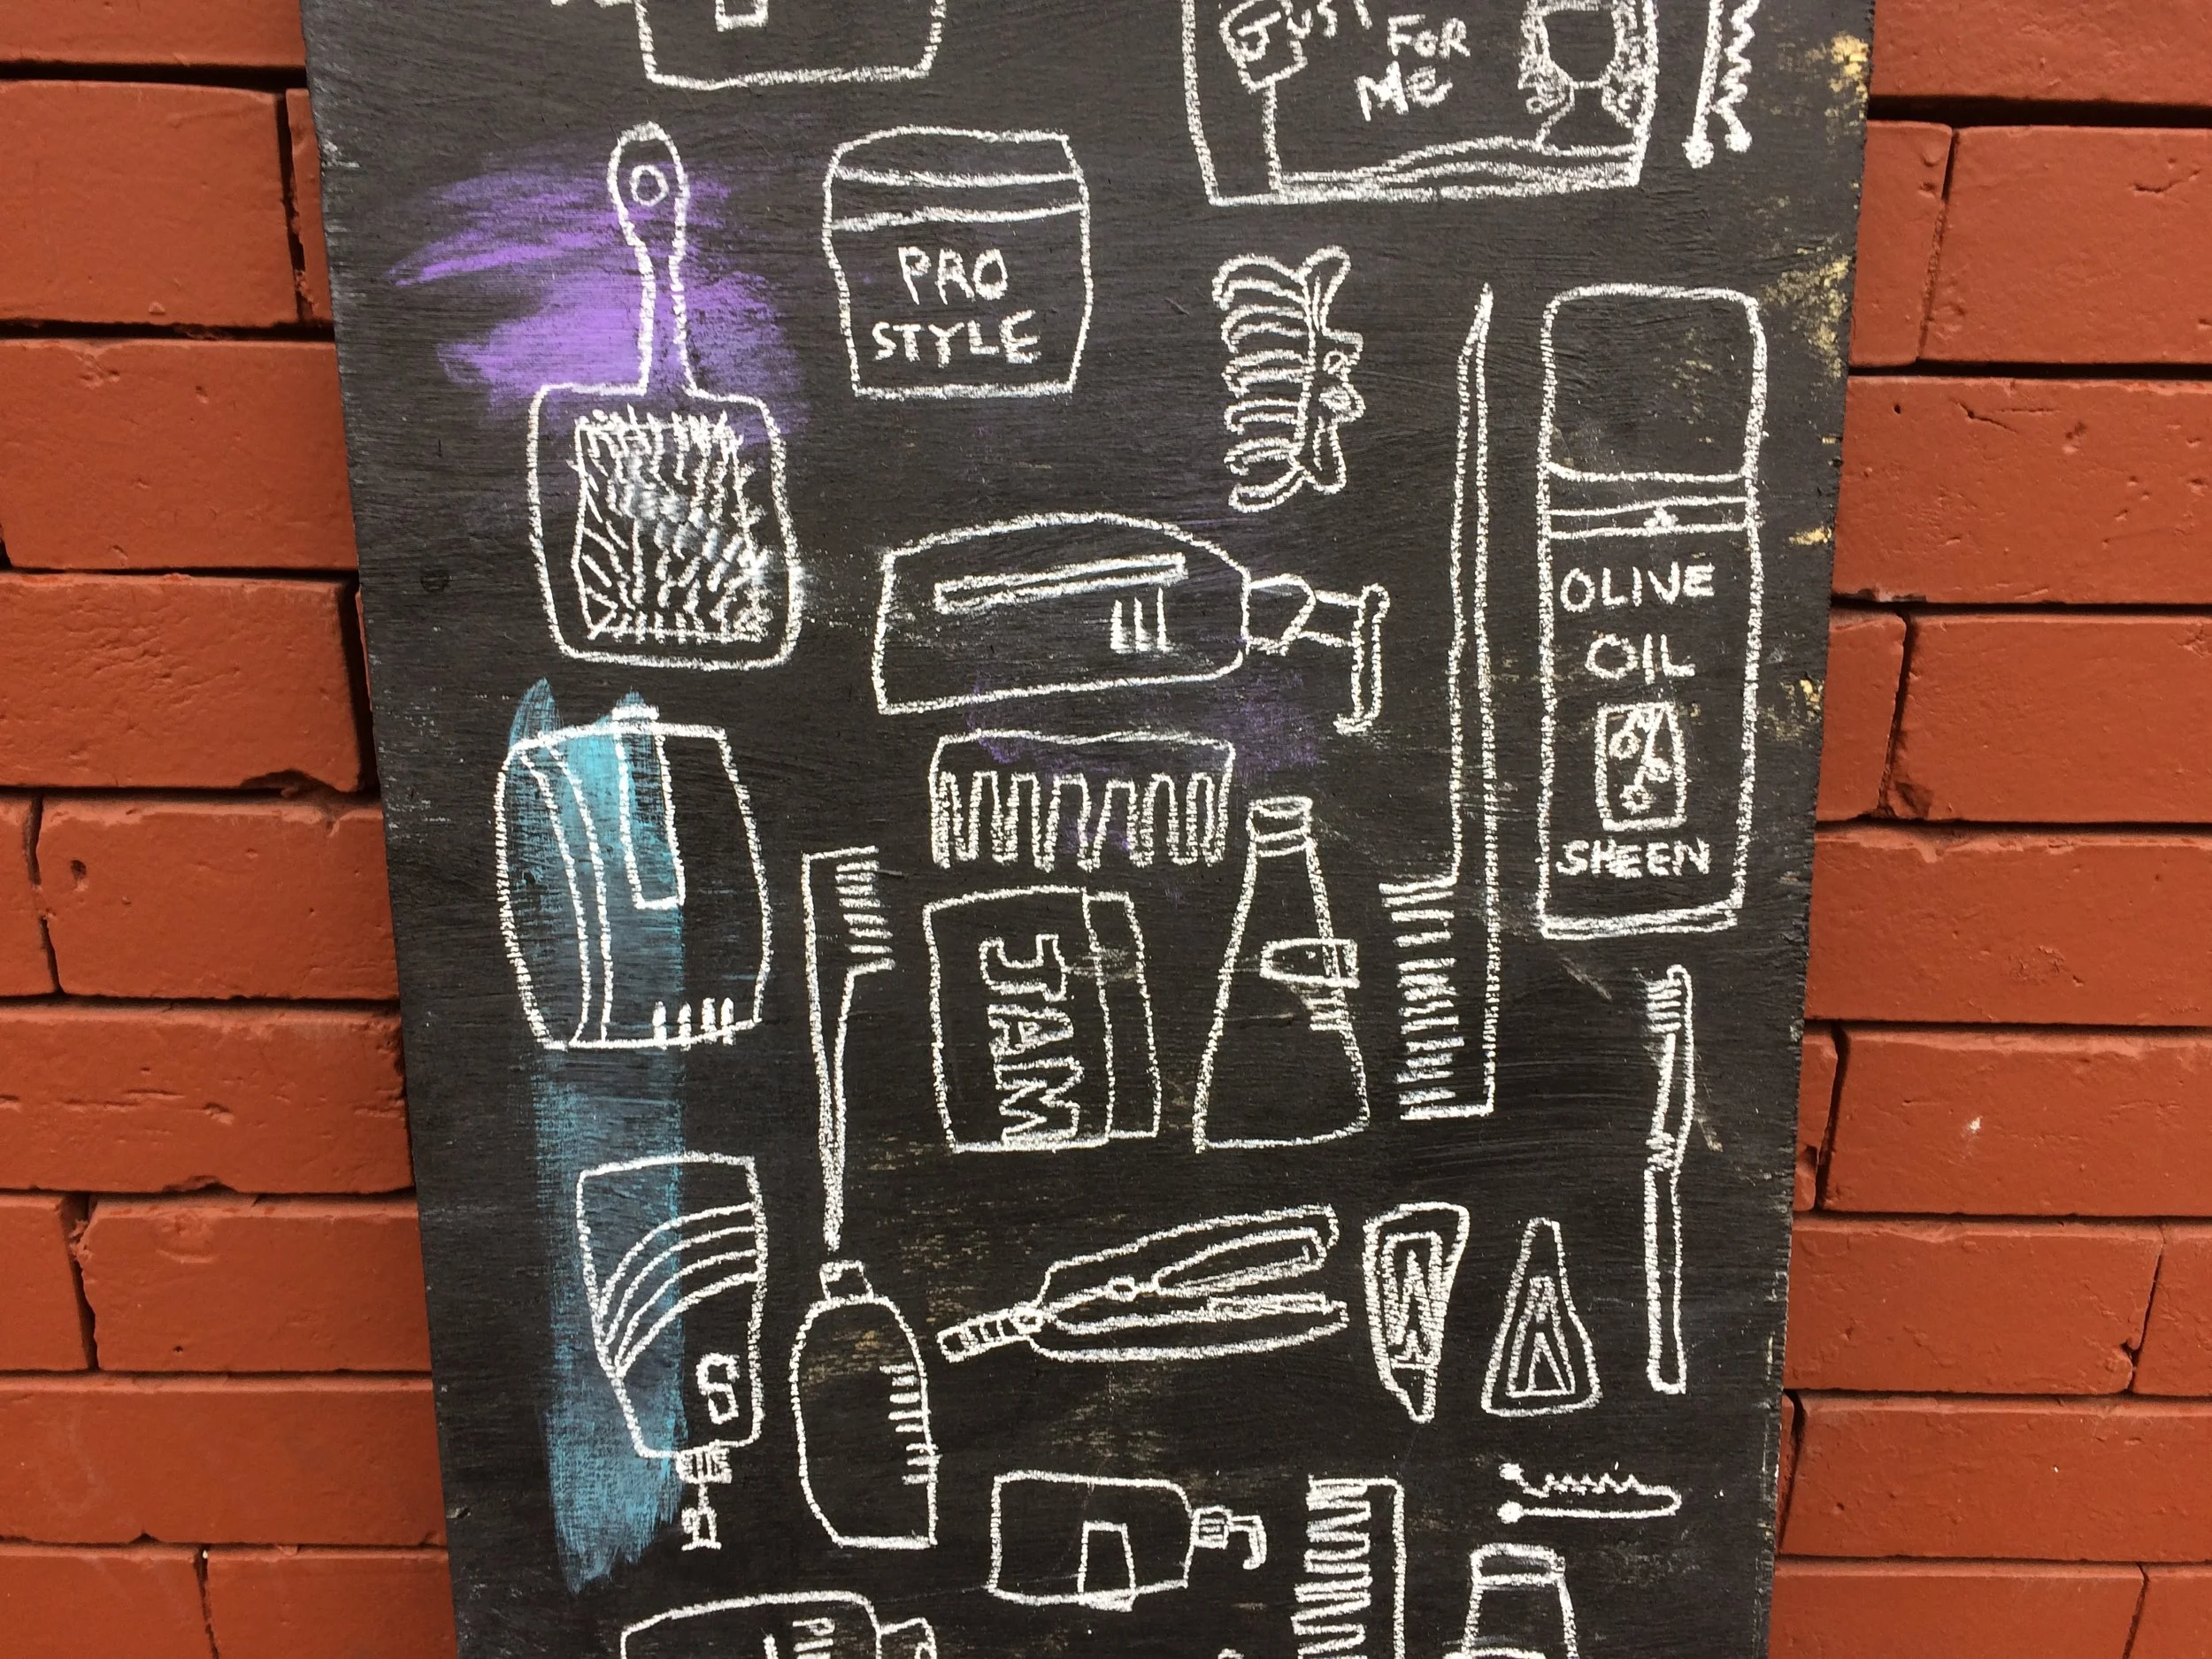 JUST
FOR
ME
PRO
STYLE
OLIVE
OIL
SHEEN
JAM
S